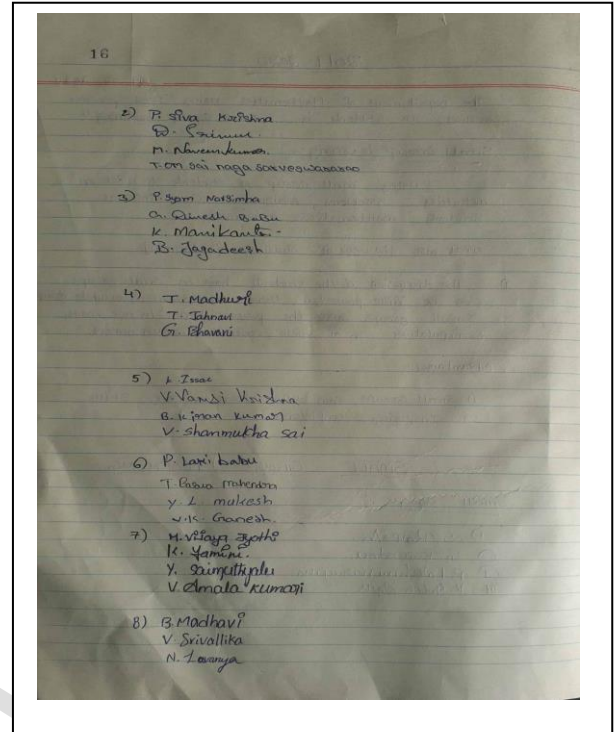 16
2) P. Siva Krishna
D. Srinu
M. Naveen kumar
T. om sai naga sarveswararao
3) P. Syam Narsimha
G. Dinesh Babu
K. Manikanta
B. Jagadeesh
4) T. Madhuri
T. Jahnavi
G. Bhavani
5) L Issac
V. Vamsi Krishna
B. Kiran Kumar
V. Shanmukha Sai
6) P. Laxi babu
T. mahendra
Y. L. mukesh
V. K. Ganesh.
7) M. Vijaya Jyothi
K. Yamini.
Y. Saimuthyalu
V. Amala Kumari
8) B. Madhavi
V. Srivallika
N. Lavanya